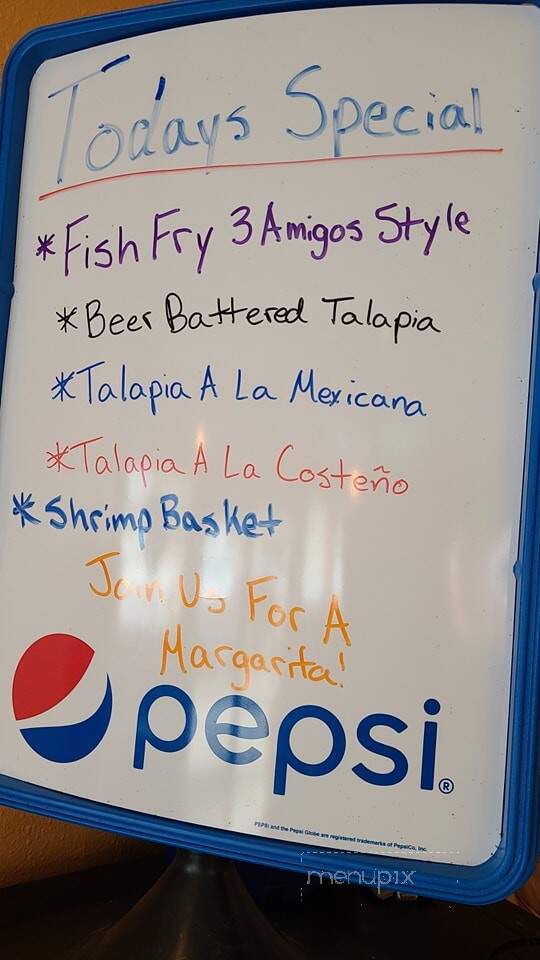 Todays Special
*Fish Fry 3 Amigos Style
*Beer Battered Talapia
*Talapia A La Mexicana
*Talapia A La Costeño
*Shrimp Basket
Join Us For A
Margarita!
pepsi®
PEPSI and the Pepsi Globe are registered trademarks of PepsiCo, Inc.
menupix